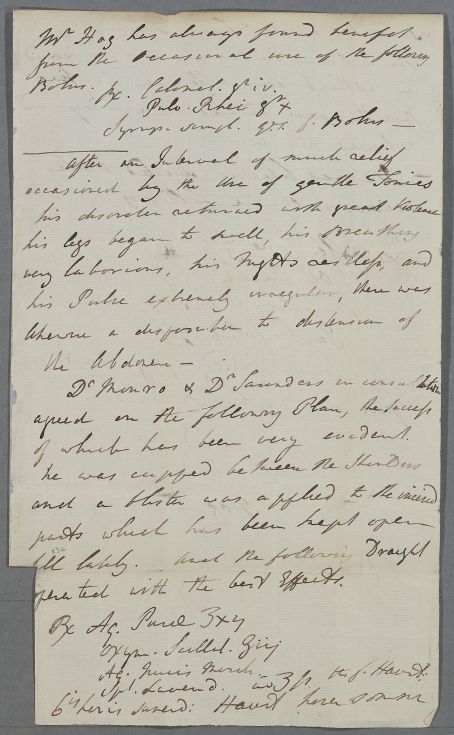 Mr Hog has always found benefit
from the occasional use of the following
Bolus.
Rx. Calomel. gr iv.
Pulv. Rhei gr x
Syrup. simpl. q.s. f. Bolus —
After an Interval of much relief
occasioned by the use of gentle Tonics
his disorder returned with great Violence
his legs began to swell, his Breathing
very laborious, his Nights restless, and
his Pulse extremely irregular, there was
likewise a disposition to distension of
the Abdomen —
Dr Monro & Dr Saunders in consultation
agreed on the following Plan, the success
of which has been very evident.
he was cupped between the Shoulders
and a blister was applied to the incised
parts which has been kept open
till lately. And the following Draught
operated with the best Effects.
Rx Aq. Puræ ʒxij
Oxym. Scillit. ʒiij
Aq. Nucis Mosch.
Spt. Lavend. aa ʒſs f. Haust.
6tis horis sumend: Haust hora somni